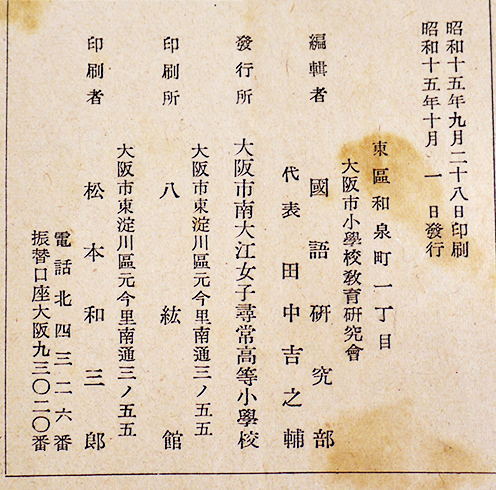 昭和十五年九月二十八日印刷
昭和十五年十月 一 日發行
東區和泉町一丁目
大阪市小學校敎育硏究會
編輯者 國語硏究部
代表 田中吉之輔
發行所 大阪市南大江女子尋常高等小學校
大阪市東淀川區元今里南通三ノ五五
印刷所 八紘館
大阪市東淀川區元今里南通三ノ五五
印刷者 松本和三郎
電話北四三二六番
振替口座大阪九三〇二〇番